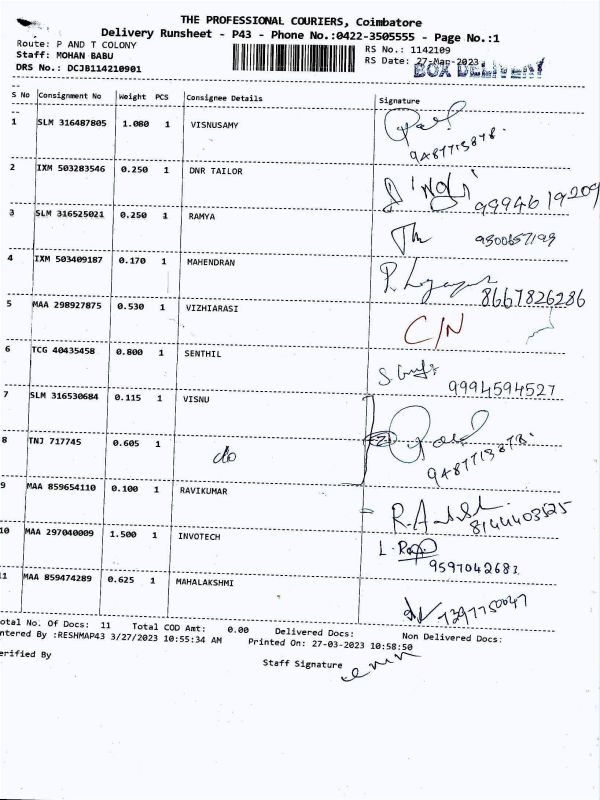 THE PROFESSIONAL COURIERS, Coimbatore
Delivery Runsheet - P43 - Phone No.:0422-3505555 - Page No.:1
Route: P AND T COLONY
RS No.: 1142109
Staff: MOHAN BABU
RS Date: 27-Mar-2023
DRS No.: DCJB114210901
BOX DELIVERY
S No Consignment No Weight PCS Consignee Details Signature
1 SLM 316487805 1.080 1 VISNUSAMY
9487713878.
2 IXM 503283546 0.250 1 DNR TAILOR
9994619209
3 SLM 316525021 0.250 1 RAMYA
4 IXM 503409187 0.170 1 MAHENDRAN
8667826286
5 MAA 298927875 0.530 1 VIZHIARASI
C/N
6 TCG 40435458 0.800 1 SENTHIL
9994594527
7 SLM 316530684 0.115 1 VISNU
8 TNJ 717745 0.605 1 do
9487713878.
9 MAA 859654110 0.100 1 RAVIKUMAR
8144403525
10 MAA 297040009 1.500 1 INVOTECH
9597042681
11 MAA 859474289 0.625 1 MAHALAKSHMI
7397750047
otal No. Of Docs: 11 Total COD Amt: 0.00 Delivered Docs: Non Delivered Docs:
ntered By :RESHMAP43 3/27/2023 10:55:34 AM Printed On: 27-03-2023 10:58:50
erified By
Staff Signature